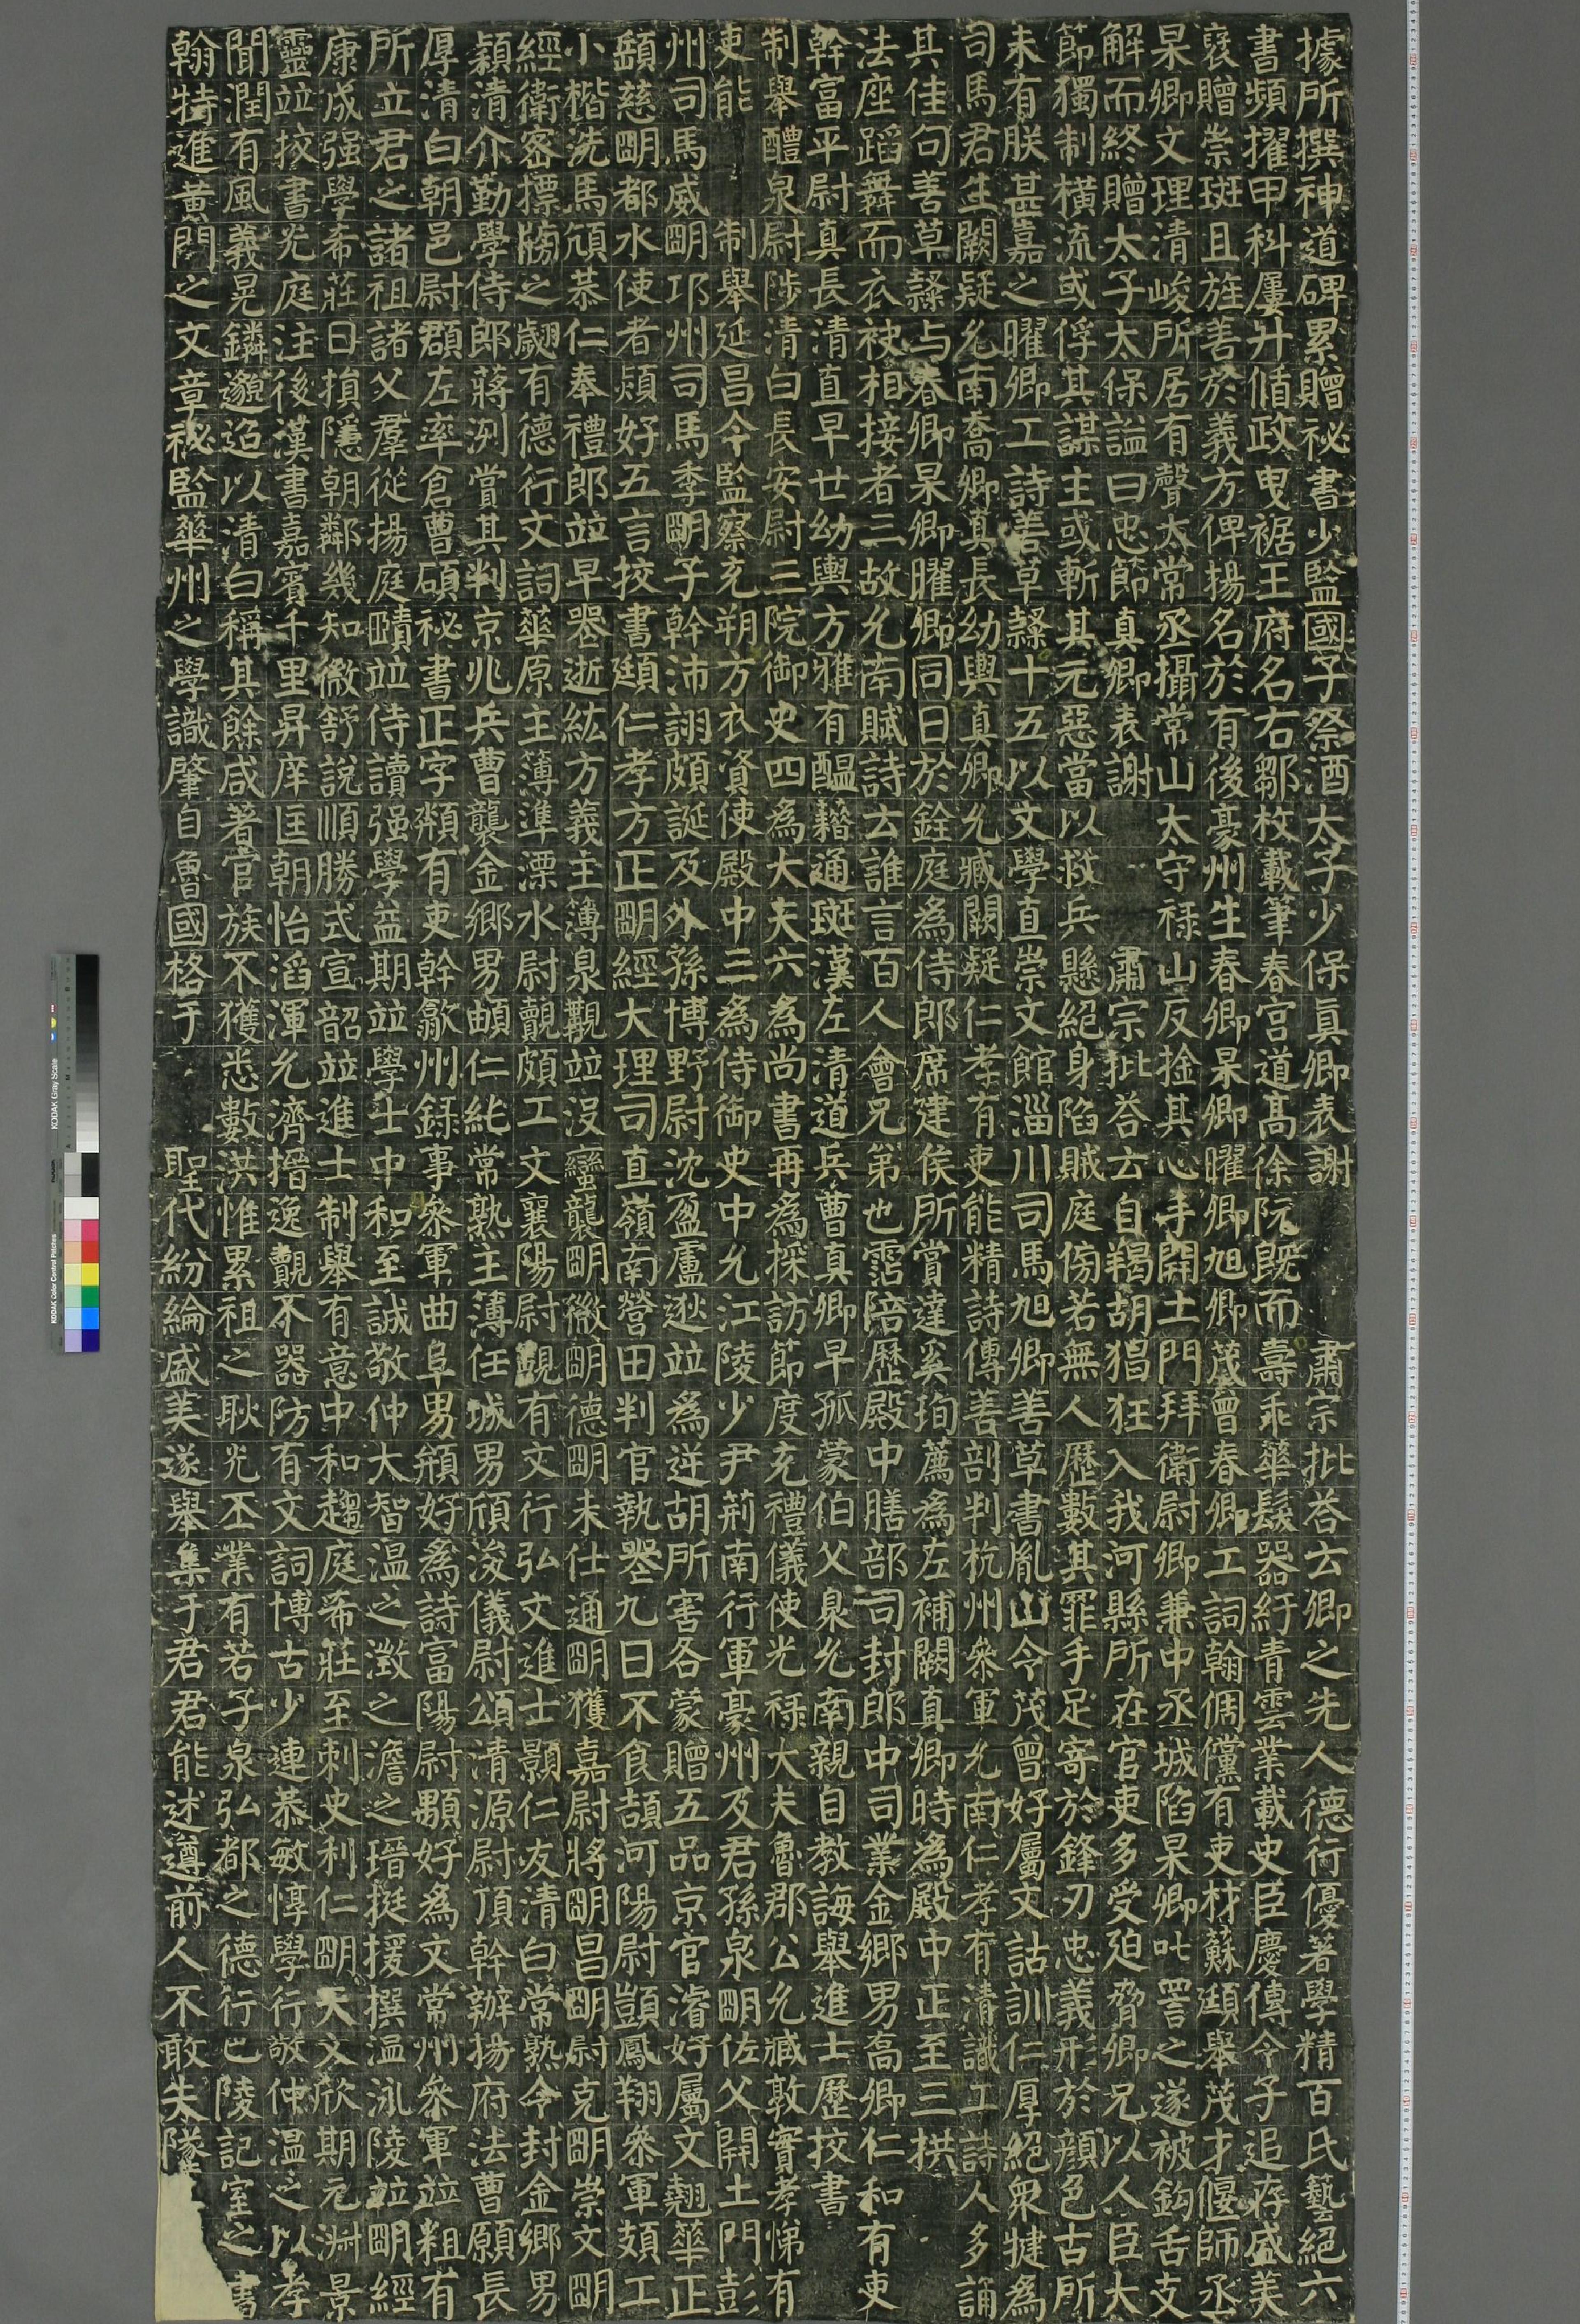 據所撰神道碑累贈祕書少監國子祭酒太子少保真卿表謝　肅宗批荅云卿之先人德行優著學精百氏藝絕六
書頻擢甲科屢升循政曳裾王府名右鄒枚載筆春宮道高徐阮既而壽乖華髮器紆青雲業載史臣慶傳令子追存盛美
襃贈崇班且旌善於義方俾揚名於有後豪州生春卿杲卿曜卿旭卿茂曾春卿工詞翰倜儻有吏材蘇頲舉茂才偃師丞
杲卿文理清峻所居有聲太常丞攝常山太守祿山反捦其心手開土門拜衛尉卿兼中丞城陷杲卿叱詈之遂被鉤舌支
解而終贈太子太保諡曰忠節真卿表謝　肅宗批荅云自羯胡猖狂入我河縣所在官吏多受迫脅卿兄以人臣大
節獨制橫流或俘其謀主或斬其元惡當以救兵懸絕身陷賊庭傍若無人歷數其罪手足寄於鋒刃忠義形於顏色古所
未有朕甚嘉之曜卿工詩善草隸十五以文學直崇文館淄川司馬旭卿善草書胤山令茂曾好屬文詁訓仁厚絕衆犍為
司馬君生闕疑允南喬卿真長幼輿真卿允臧闕疑仁孝有吏能精詩傳善剖判杭州參軍允南仁孝有清識工詩人多誦
其佳句善草隸与春卿杲卿曜卿同日於銓庭為侍郎席建侯所賞達奚珣薦為左補闕真卿時為殿中正至三拱
法座蹈舞而衣袂相接者三故允南賦詩云誰言百人會兄弟也霑陪歷殿中膳部司封郎中司業金鄉男高卿仁和有吏
幹富平尉真長清直早世幼輿方雅有醞藉通班漢左清道兵曹真卿早孤蒙伯父臮允南親自教誨舉進士歷校書
制舉醴泉尉陟清白長安尉三院御史四為大夫六為尚書再為採訪節度充禮儀使光祿大夫魯郡公允臧敦實孝悌有
吏能　制舉延昌令監察充朔方衣資使殿中三為侍御史中允江陵少尹荊南行軍豪州及君孫泉明佐父開土門彭
州司馬威明邛州司馬季明子幹沛詡頗誕及外孫博野尉沈盈盧逖並為逆胡所害各蒙贈五品京官濬好屬文翹華正
頿慈明都水使者熲好五言校書頲仁孝方正明經大理司直嶺南營田判官執喪九日不食頡河陽尉顗鳳翔參軍頍工
小楷洗馬頎恭仁奉禮郎並早喪逝紘方義主簿泉觀並沒蠻龔明徽明德明未仕通明獲嘉尉將明昌明尉克明崇文明
經衛密摽牓之翽有德行文詞華原主簿準溧水尉覿頗工文襄陽尉覬有文行弘文進士顥仁友清白常熟令封金鄉男
潁清介勤學侍郎蔣洌賞其判京兆兵曹襲金鄉男頔仁純常熟主簿任城男頎浚儀尉頌清源尉頂幹辦揚府法曹願長
厚清白朝邑尉頵左率倉曹碩祕書正字頖有吏幹歙州録事參軍曲阜男頩好為詩富陽尉顤好為文常州參軍並粗有
所立君之諸祖諸父羣從揚庭賾並侍讀强學益期並學士中和至誠敬仲大智溫之澂之澹之瑨挺援撰溫泳陵並明經
康成强學希莊日損隱朝鄰幾知微舒說順勝式宣韶並進士制舉有意中和趨庭希莊至刺史利仁明天文欣期元淑景
靈並校書光庭注後漢書嘉賓千里昇庠匡朝怡滔渾允濟搢逸覿不器防有文詞博古少連恭敏惇學行敬仲溫之以孝
聞潤有風義晃鏻邈迢以清白稱其餘咸著官族不獲悉數洪惟累祖之耿光丕業有若子泉弘都之德行巴陵記室之書
翰特進黃門之文章祕監華州之學識肇自魯國格于　聖代紛綸盛美遂舉集于君君能述遵前人不敢失隊